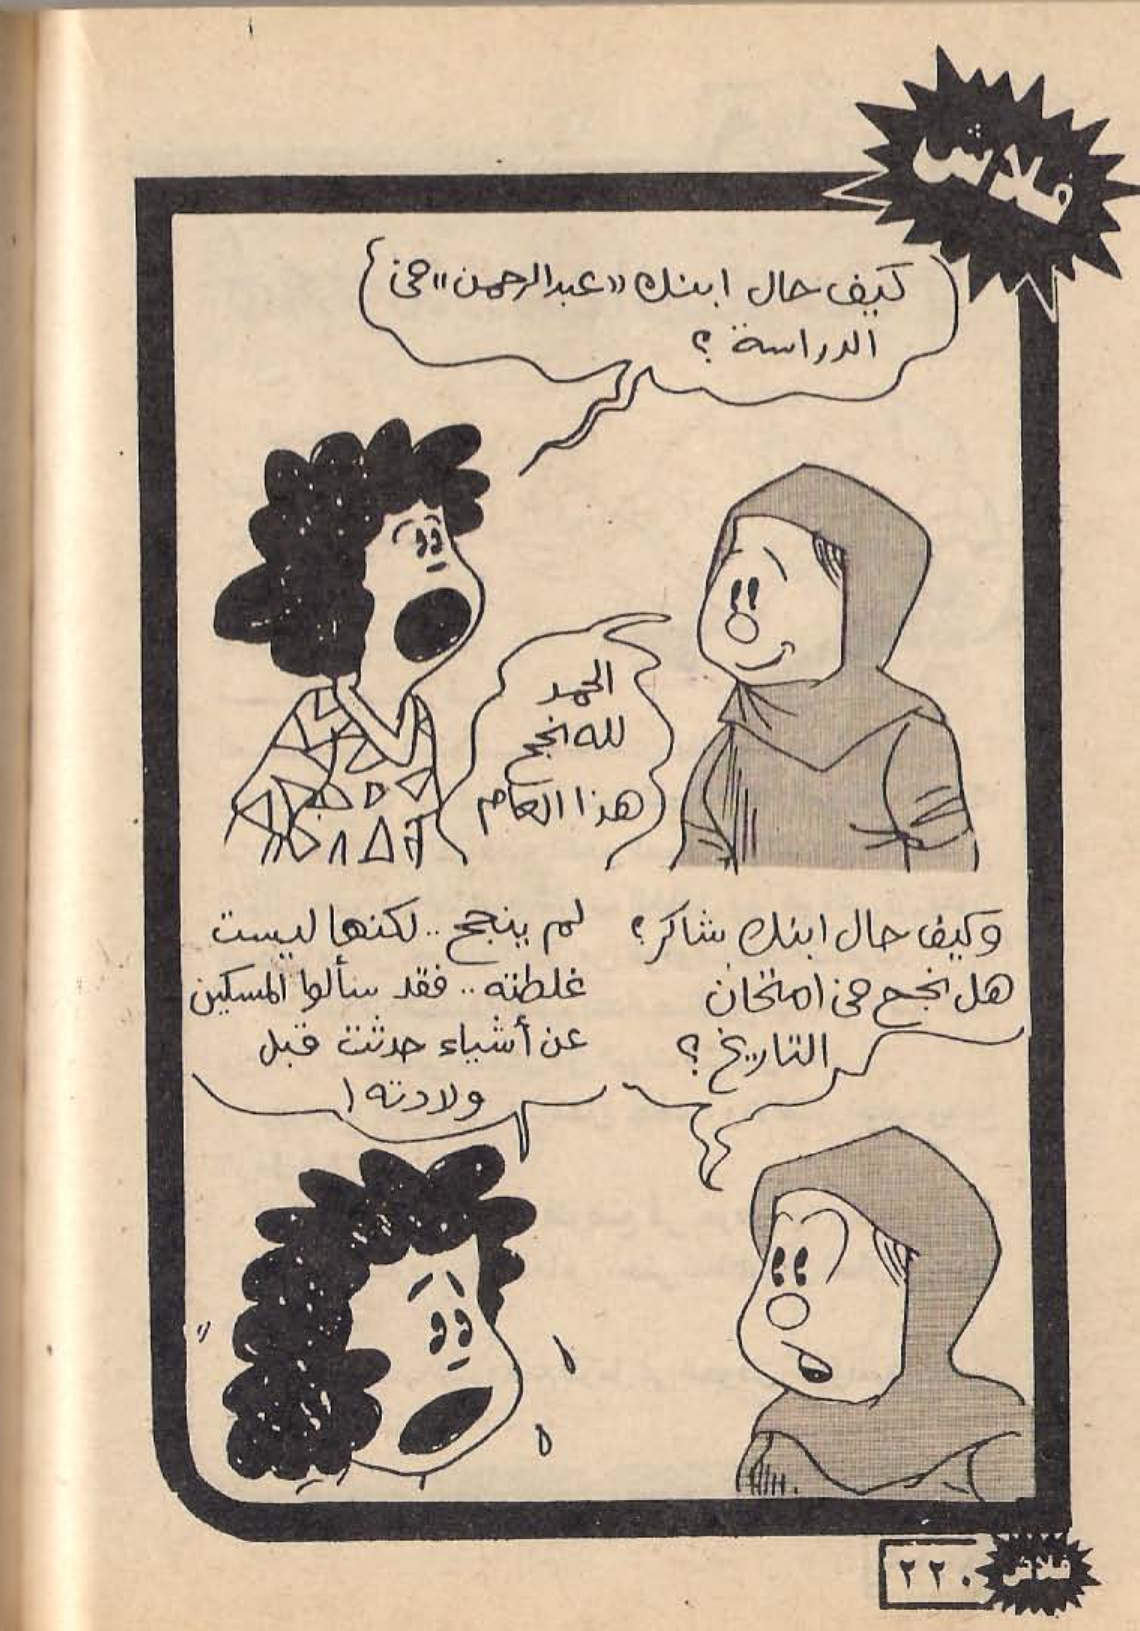 فلاش
كيف حال ابنك «عبدالرحمن» فى
الدراسة ؟
الحمد
لله نجح
هذا العام
وكيف حال ابنك شاكر؟
هل نجح فى امتحان
التاريخ ؟
لم ينجح .. لكنها ليست
غلطته .. فقد سألوا المسكين
عن أشياء حدثت قبل
ولادته !
٢٢٠
فلاش